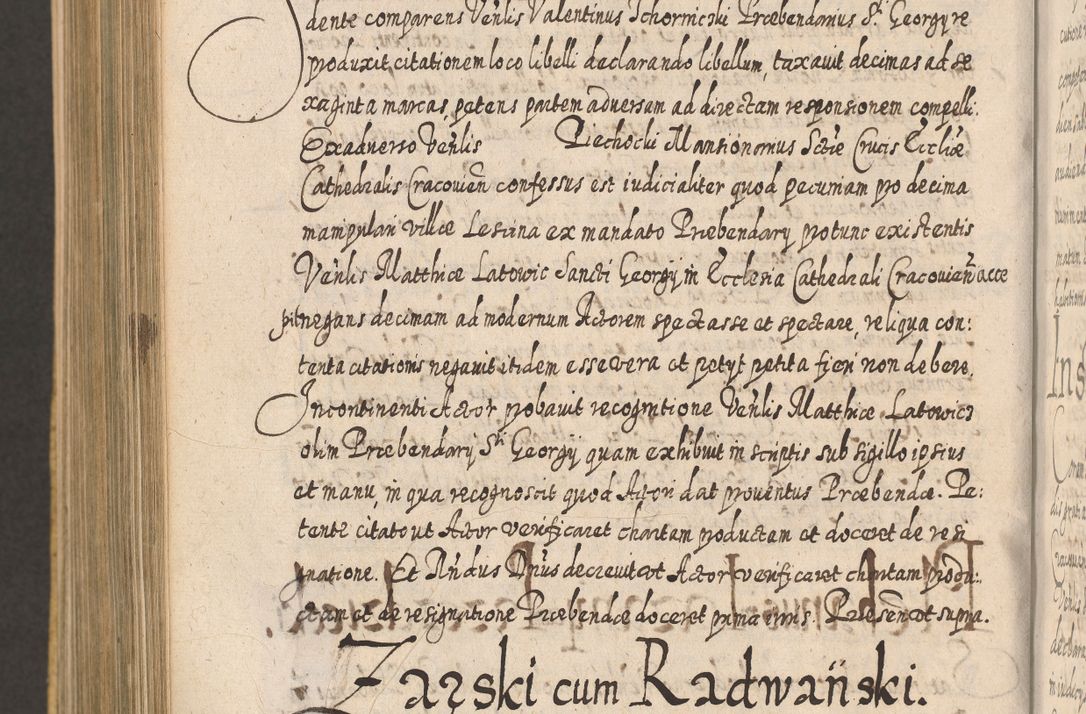 dente comparens Venlis Valentinus Tchornicski Præbendarius Sti Georgy re
produxit citationem loco libelli declarando libellum, taxauit decimas ad se
xaginta marcas, petens partem aduersam ad directam responsionem compelli.
Exaduerso Venlis Piechocki Mansionarius Sctæ Crucis Eccliæ
Cathedralis Cracouien confessus est iudicialiter quod pecuniam pro decima
manipulari villæ Lesina ex mandato Præbendary protunc existentis
Venlis Matthiæ Latowic Sancti Georgy in Ecclesia Cathedrali Cracouien acce
pit negans decimam ad modernum Actorem spectasse et spectare, reliqua con:
tenta citationis negauit itidem esse vera et petyt petita fieri non debere.
Incontinenti Actor probauit recognitione Venlis Matthiæ Latowicz
olim Præbendary Sti Georgy quam exhibuit in scriptis sub sigillo ipsius
et manu, in qua recognoscit quod Actori dat prouentus Præbendæ. Pe:
tente citato ut Actor verificaret chartam productam et doceret de resi
gnatione. Et Rndus Dnus decreuit ut Actor verificaret chartam produ:
ctam et de resignatione Præbendæ doceret prima iuris. Præsen ut supra.
Zarski cum Radwański.